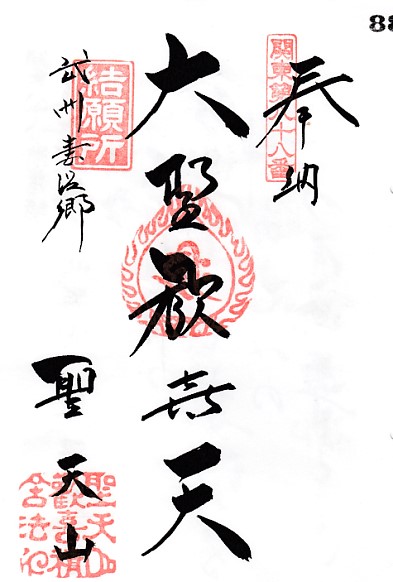 88
奉納
關東第八十八番
大聖歓喜天
武州妻沼郷
結願所
聖天山
聖天山
歡喜精
舎法印